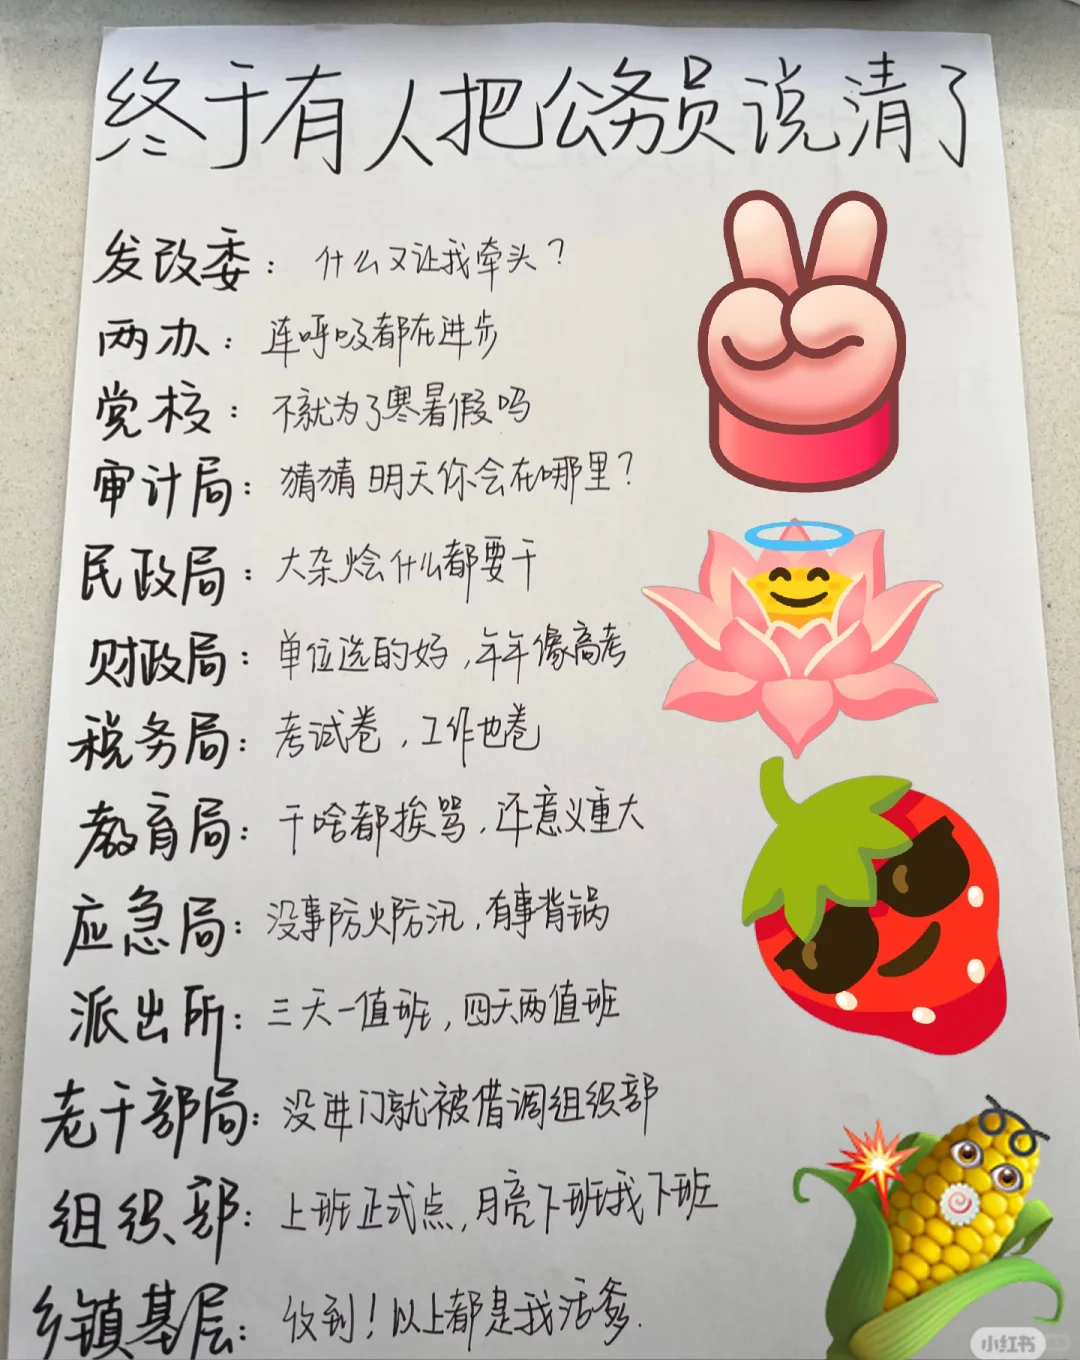 终于有人把公务员说清了
发改委：什么又让我牵头？
两办：连呼吸都在进步
党校：不就为了寒暑假吗
审计局：猜猜明天你会在哪里？
民政局：大杂烩什么都要干
财政局：单位选的好，年年像高考
税务局：考试卷，工作也卷
教育局：干啥都挨骂，还意义重大
应急局：没事防火防汛，有事背锅
派出所：三天一值班，四天两值班
老干部局：没进门就被借调组织部
组织部：上班正式点，月亮下班我下班
乡镇基层：收到！以上都是我活爹.
小红书